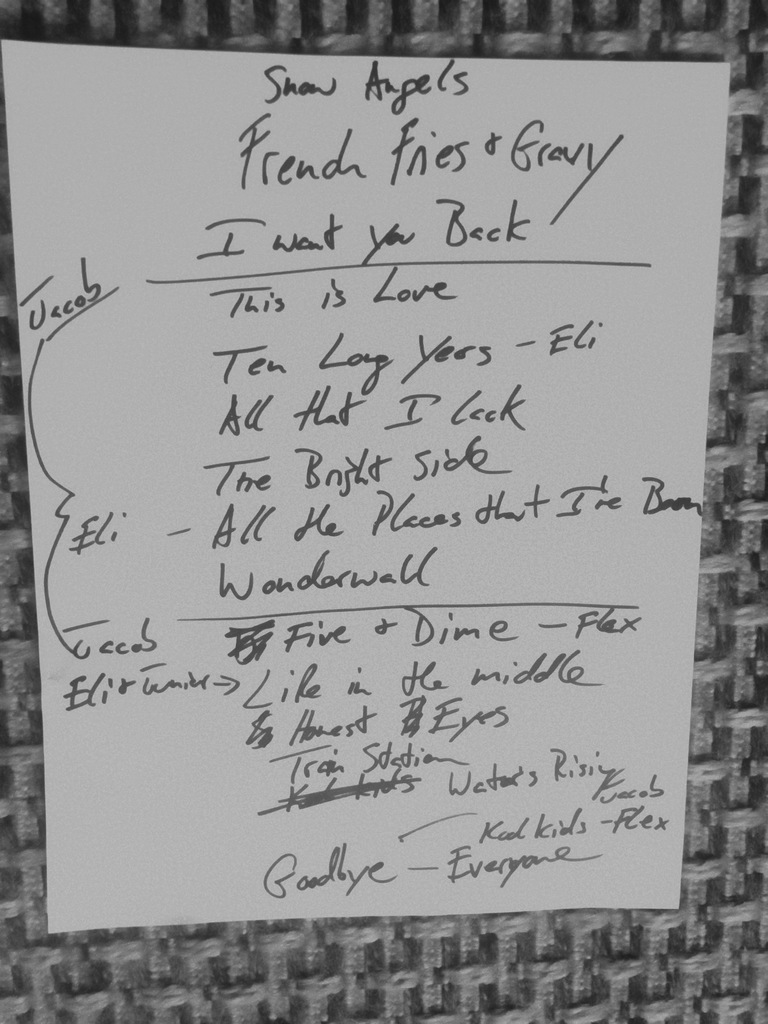 Snow Angels
French Fries + Gravy
I want you Back
Jacob
This is Love
Ten Long Years - Eli
All that I lack
The Bright Side
Eli - All the Places that I've Been
Wonderwall
Jacob Five + Dime - Flex
Eli + Junior → Life in the middle
Honest Eyes
Train Station
Kool kids Water's Rising
Jacob
Kool kids - Flex
Goodbye - Everyone